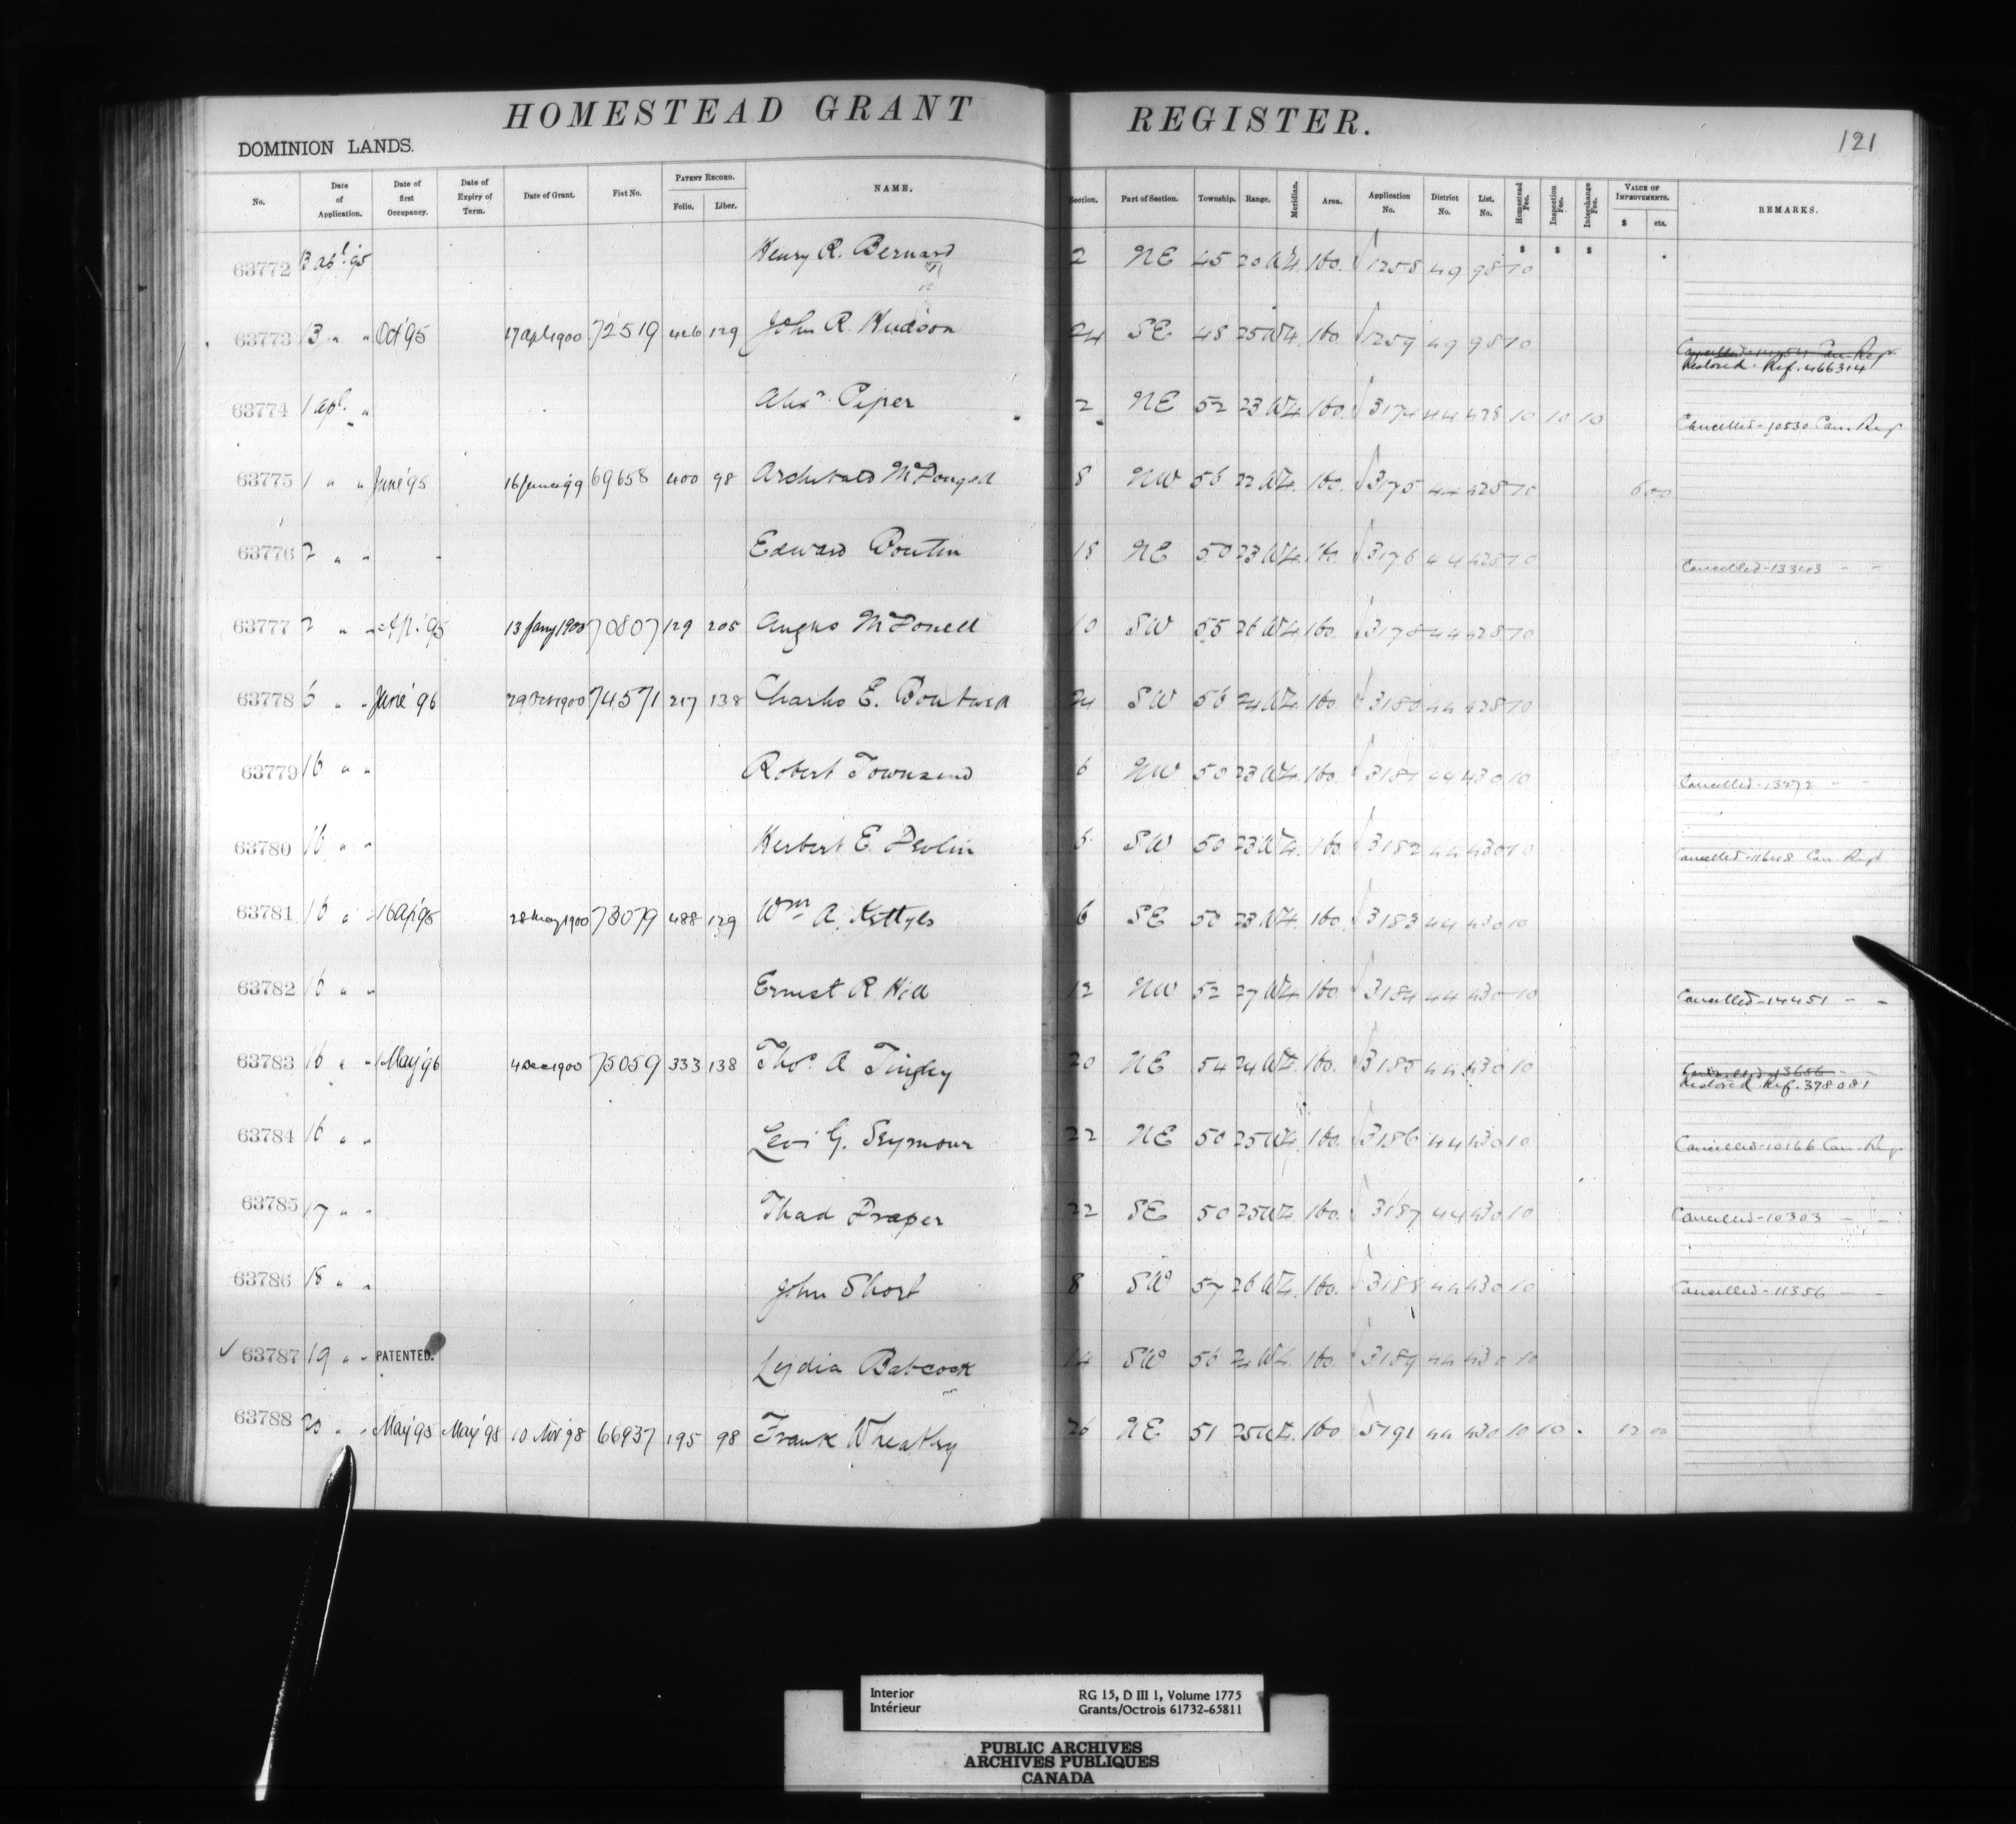 HOMESTEAD GRANT REGISTER.
DOMINION LANDS.
121
No. Date of Application. Date of first Occupancy. Date of Expiry of Term. Date of Grant. Fiat No. PATENT RECORD. Folio. Liber. NAME. Section. Part of Section. Township. Range. Meridian. Area. Application No. District No. List. No. Homestead Fee. Inspection Fee. Interchange Fee. VALUE OF IMPROVEMENTS. $ cts. REMARKS.
$ $ $
63772 13 apl. 95 Henry R. Bernard 2 NE 45 20 W4. 160. 1258 49 98 10
63773 13 " " Oct '95 17 apl 1900 72519 426 129 John R. Hudson 24 SE 48 25 W4. 160. 1259 49 98 10
Restored. Ref. 466314
63774 1 apl. " Alexr. Piper 2 NE 52 23 W4. 160. 3174 44 428 10 10 10 Cancelled - 10530 Can. Regr
63775 1 " " June '95 16 June '99 69658 400 98 Archibald McDougall 8 NW 56 22 W4. 160. 3175 44 428 10 6 00
63776 2 " " Edward Boutin 18 NE 50 23 W4. 160. 3176 44 428 10 Cancelled - 13343 " "
63777 2 " " 13 Jany 1900 70807 129 205 Angus McDonell 10 SW 55 26 W4. 160. 3178 44 428 10
63778 6 " " June '96 1900 74571 217 138 Charles E. Boutwell 24 SW 56 24 W4. 160. 3180 44 428 10
63779 16 " " Robert Townsend 6 NW 50 23 W4. 160. 3181 44 430 10 Cancelled - 13272 " "
63780 16 " " Herbert E. Devlin SW 50 23 W4. 160. 3182 44 430 10 Cancelled - 11648 Can. Regr
63781 16 " " 16 Ap '95 28 May 1900 73079 488 129 Wm. A. Kettyls 6 SE 50 23 W4. 160. 3183 44 430 10
63782 16 " " Ernest R. Hill 12 NW 52 27 W4. 160. 3184 44 430 10 Cancelled - 14451 " "
63783 16 " " May '96 4 Dec 1900 75059 333 138 Thos. A Tingley 20 NE 54 24 W4. 160. 3185 44 430 10
Restored. Ref. 378081
63784 16 " " Levi G. Seymour 22 NE 50 25 W4. 160. 3186 44 430 10 Cancelled - 10166 Can. Regr
63785 17 " " Thad Draper 22 SE 50 25 W4. 160. 3187 44 430 10 Cancelled - 10303 " "
63786 18 " " John Short 8 SW 57 26 W4. 160. 3188 44 430 10 Cancelled - 11356 " "
✓ 63787 19 " " PATENTED. Lydia Babcock 14 SW 56 24 W4. 160. 3189 44 430 10
63788 20 " " May '95 May '98 10 Nov '98 66937 195 98 Frank Wheatley 26 NE 51 25 W4. 160 44 430 10 10 12 00
Interior RG 15, D III 1, Volume 1775
Intérieur Grants/Octrois 61732-65811
PUBLIC ARCHIVES
ARCHIVES PUBLIQUES
CANADA